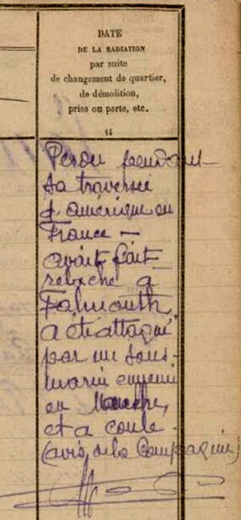 DATE
DE LA RADIATION
par suite
de changement de quartier,
de démolition,
prise ou perte, etc.
14
Perdu pendant
sa traversée
d'amérique en
France —
avait fait
relache à
Falmouth,
a été attaqué
par un sous-
marin ennemi
en Manche,
et a coulé -
(avis de la Compagnie)